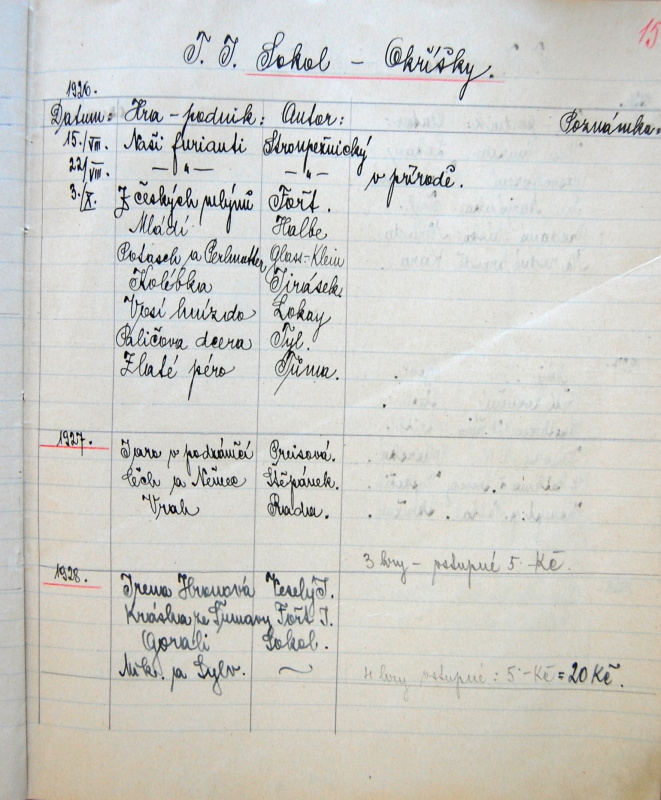 15
T. J. Sokol – Okříšky.
1926.
Datum: Hra – podnik: Autor: Poznámka.
15./VIII. Naši furianti Stroupežnický
22/VIII. —„— —„— v přírodě.
3./X. Z českých mlýnů Fořt.
Mládí Halbe
Potasch a Perlmutter Glass-Klein
Kolébka Jirásek.
Vosí hnízdo Lokay
Paličova dcera Tyl.
Zlaté péro Tůma.
1927.
Jaro v podzámčí Preisová.
Čech a Němec Štěpánek.
Vrah Rada.
3 hry – postupné 5 Kč.
1928.
Irena Hronová Veselý J.
Kráska ze Šumavy Fořt J.
Gorali Sokol.
Mik. a Sylv. ~
4 hry postupné: 5 – Kč = 20 Kč.